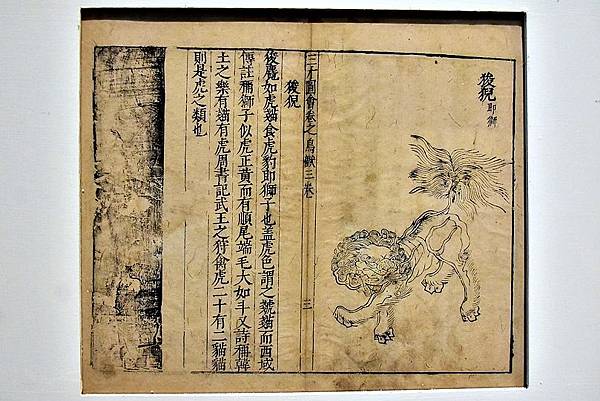 狻猊 即獅
三才圖會卷之鳥獸三卷 三
狻猊
狻麑如虎貓食虎豹即獅子也蓋虎色謂之虦貓而西域
傳註稱獅子似虎正黃而有尾端毛大如斗又詩稱韓
王之樂有貓有虎周書記武王之狩禽虎二十有二貓貓
則是虎之類也